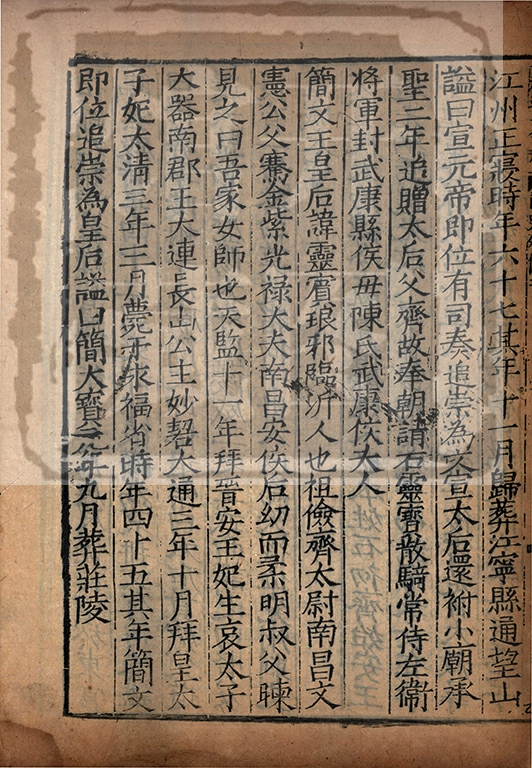 江州正寢時年六十七其年十一月歸葬江寧縣通望山
謚曰宣元帝即位有司奏追崇為文宣太后還祔小廟承
聖二年追贈太后父齊故奉朝請石靈寶散騎常侍左衛
將軍封武康縣侯毋陳氏武康侯夫人
簡文王皇后諱靈賓琅邪臨沂人也祖儉齊太尉南昌文
憲公父騫金紫光祿大夫南昌安侯后幼而柔明叔父暕
見之曰吾家女師也天監十一年拜晉安王妃生哀太子
大器南郡王大連長山公主妙䂮大通三年十月拜皇太
子妃太清三年三月薨于永福省時年四十五其年簡文
即位追崇為皇后謚曰簡大寶元年九月葬莊陵